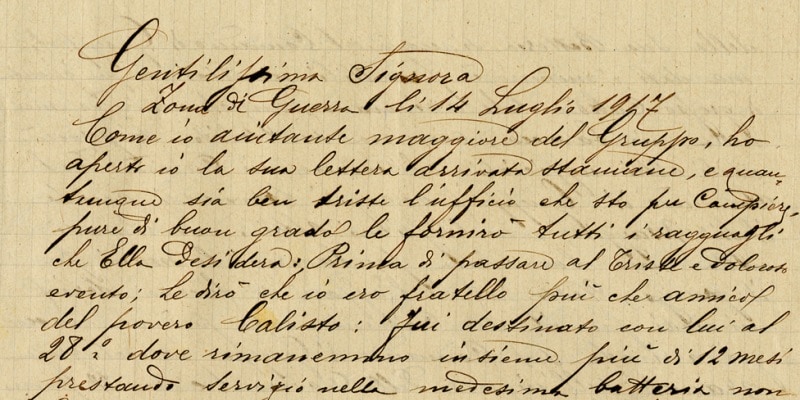 Gentilissima Signora
Zona di Guerra li 14 Luglio 1917
Come io aiutante maggiore del Gruppo, ho
aperto io la sua lettera arrivata stamane, e quan-
tunque sia ben triste l'ufficio che sto per compiere,
pure di buon grado le fornirò tutti i ragguagli
che Ella desidera: Prima di passare al triste e doloroso
evento; Le dirò che io ero fratello più che amico
del povero Calisto: Fui destinato con lui al
28º dove rimanemmo insieme più di 12 mesi
prestando servizio nella medesima batteria non